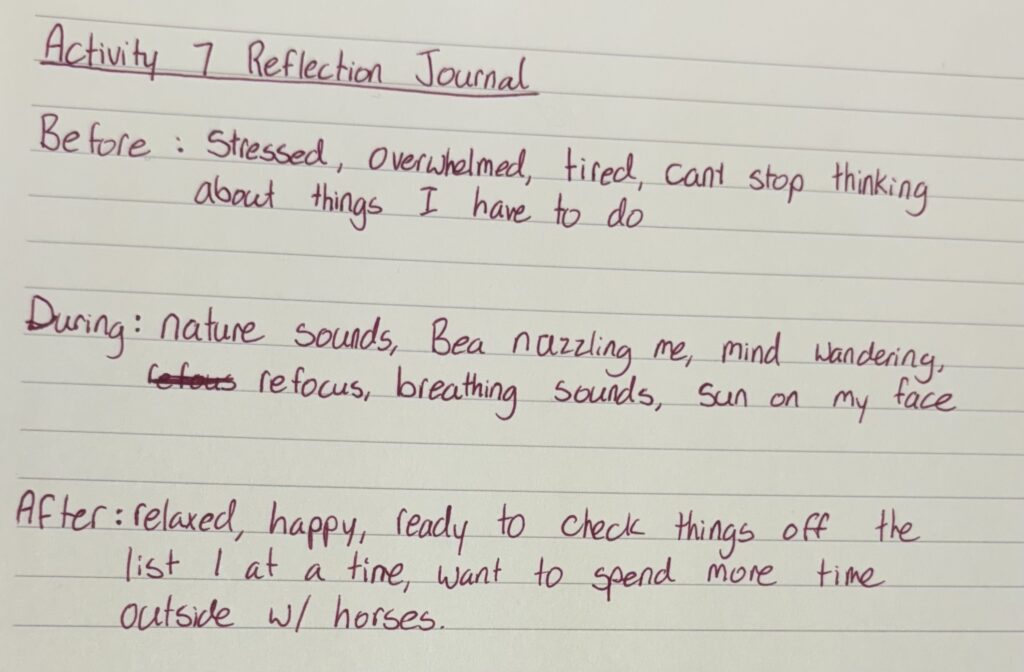 Activity 7 Reflection Journal
Before : Stressed, overwhelmed, tired, cant stop thinking
about things I have to do
During: nature sounds, Bea nazzling me, mind wandering,
refocus, breathing sounds, sun on my face
After: relaxed, happy, ready to check things off the
list 1 at a time, want to spend more time
outside w/ horses.